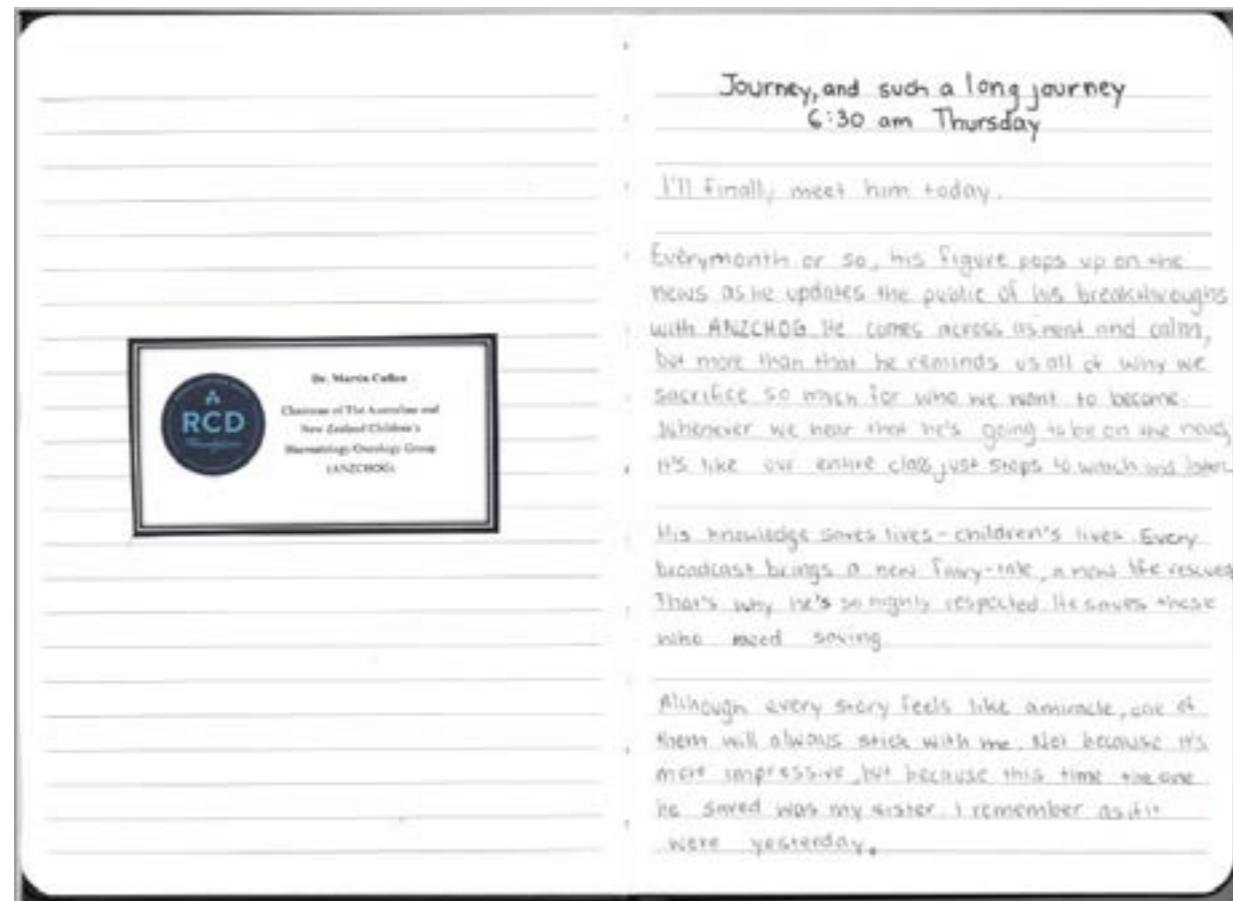 RCD
Dr. Martin Cullen
Chairman of The Australian and
New Zealand Children's
Haematology/Oncology Group
(ANZCHOG)
Journey, and such a long journey
6:30 am Thursday
I'll finally meet him today.
Everymonth or so, his figure pops up on the
news as he updates the public of his breakthroughs
with ANZCHOG. He comes across as neat and calm,
but more than that he reminds us all of why we
sacrifice so much for who we want to become.
Whenever we hear that he's going to be on the news,
it's like our entire class just stops to watch and listen.
His knowledge saves lives - children's lives. Every
broadcast brings a new fairy-tale, a new life rescued
That's why he's so highly respected. He saves those
who need saving.
Although every story feels like a miracle, one of
them will always stick with me. Not because it's
more impressive, but because this time the one
he saved was my sister. I remember as if it
were yesterday.